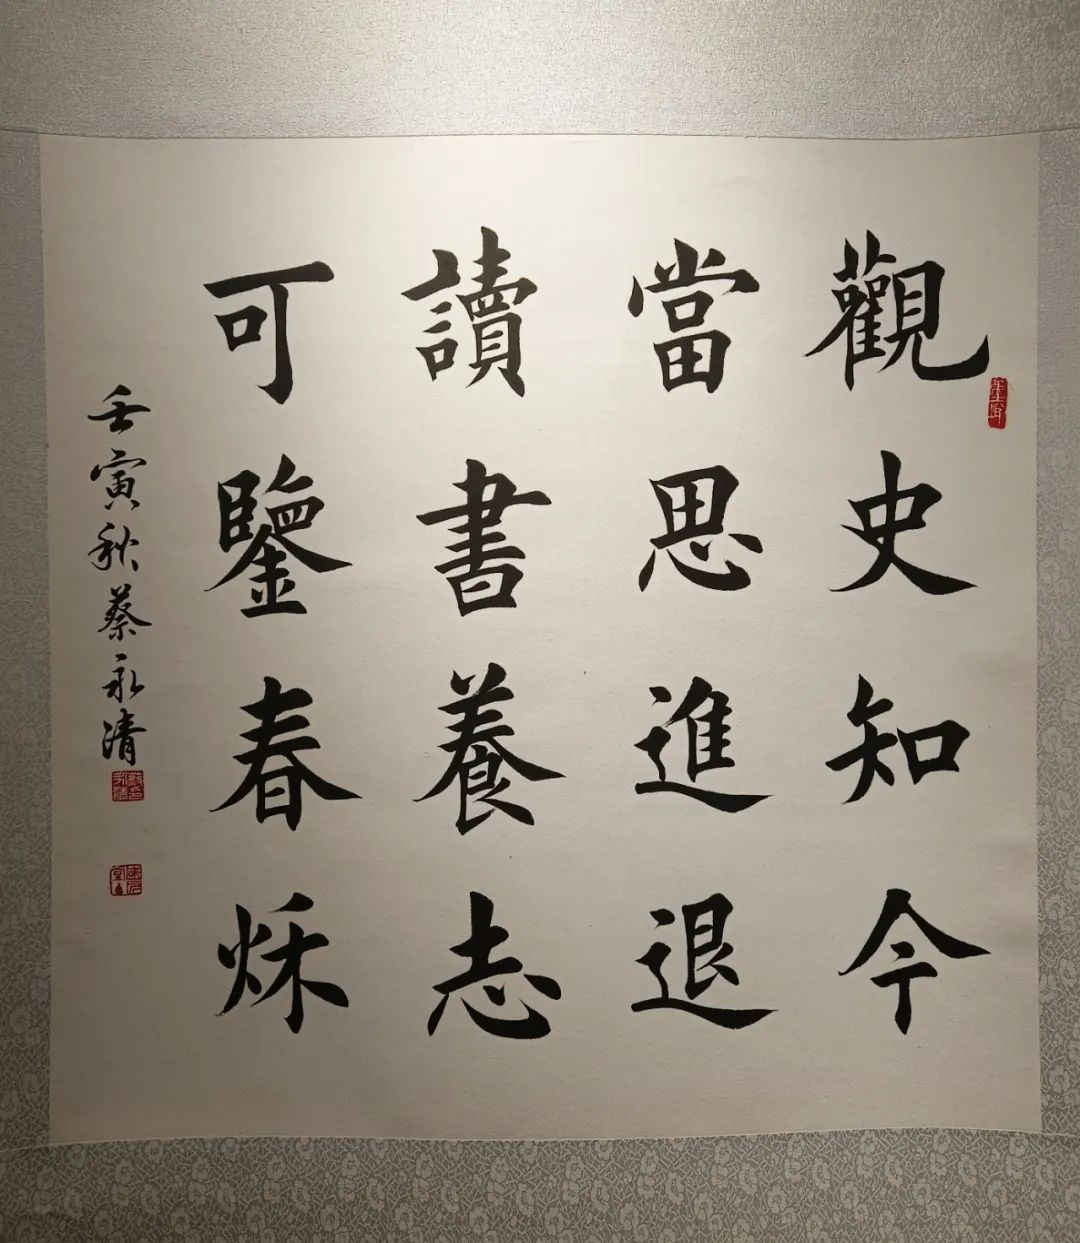 觀史知今
當思進退
讀書養志
可鑒春秌
壬寅秋蔡永清